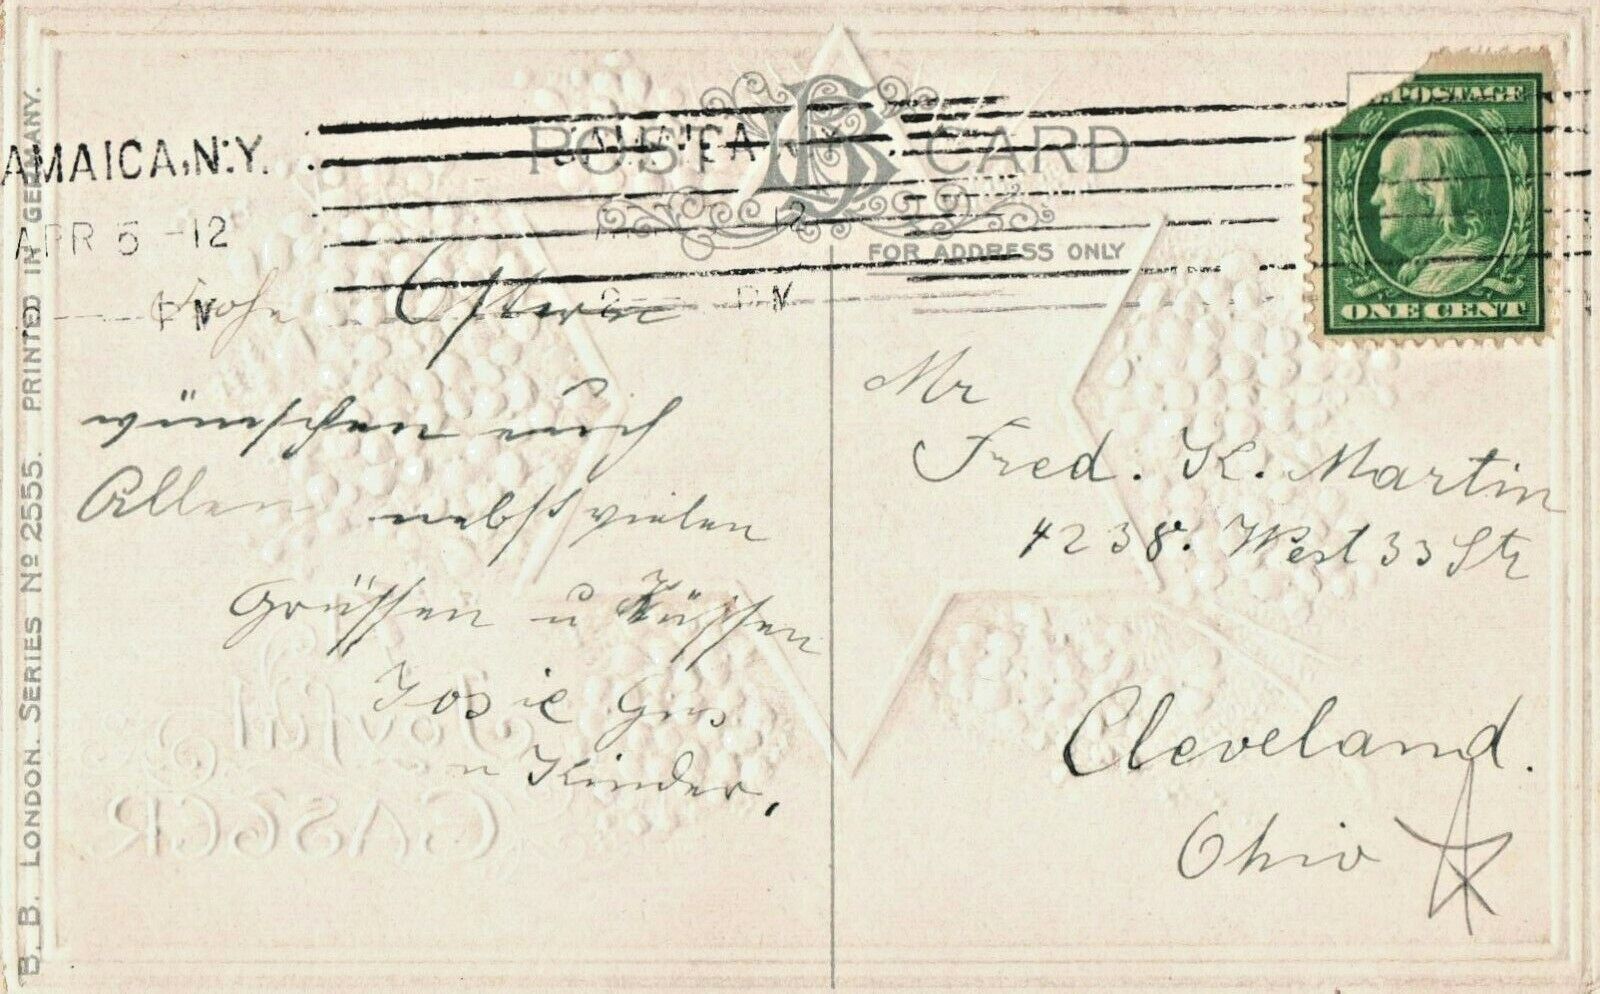 POST CARD
FOR ADDRESS ONLY
AMAICA, N.Y.
APR 5 -12
PM
JAMAICA
12
PM
U.S. POSTAGE
ONE CENT
Frohe Ostern
wünschen euch
Allen nebst vielen
Grüssen u Küssen
Josie
u Kinder,
Mr
Fred. K. Martin
4238. West 33 Str
Cleveland.
Ohio
Joyful
EASTER
B. B. LONDON. SERIES No 2555. PRINTED IN GERMANY.